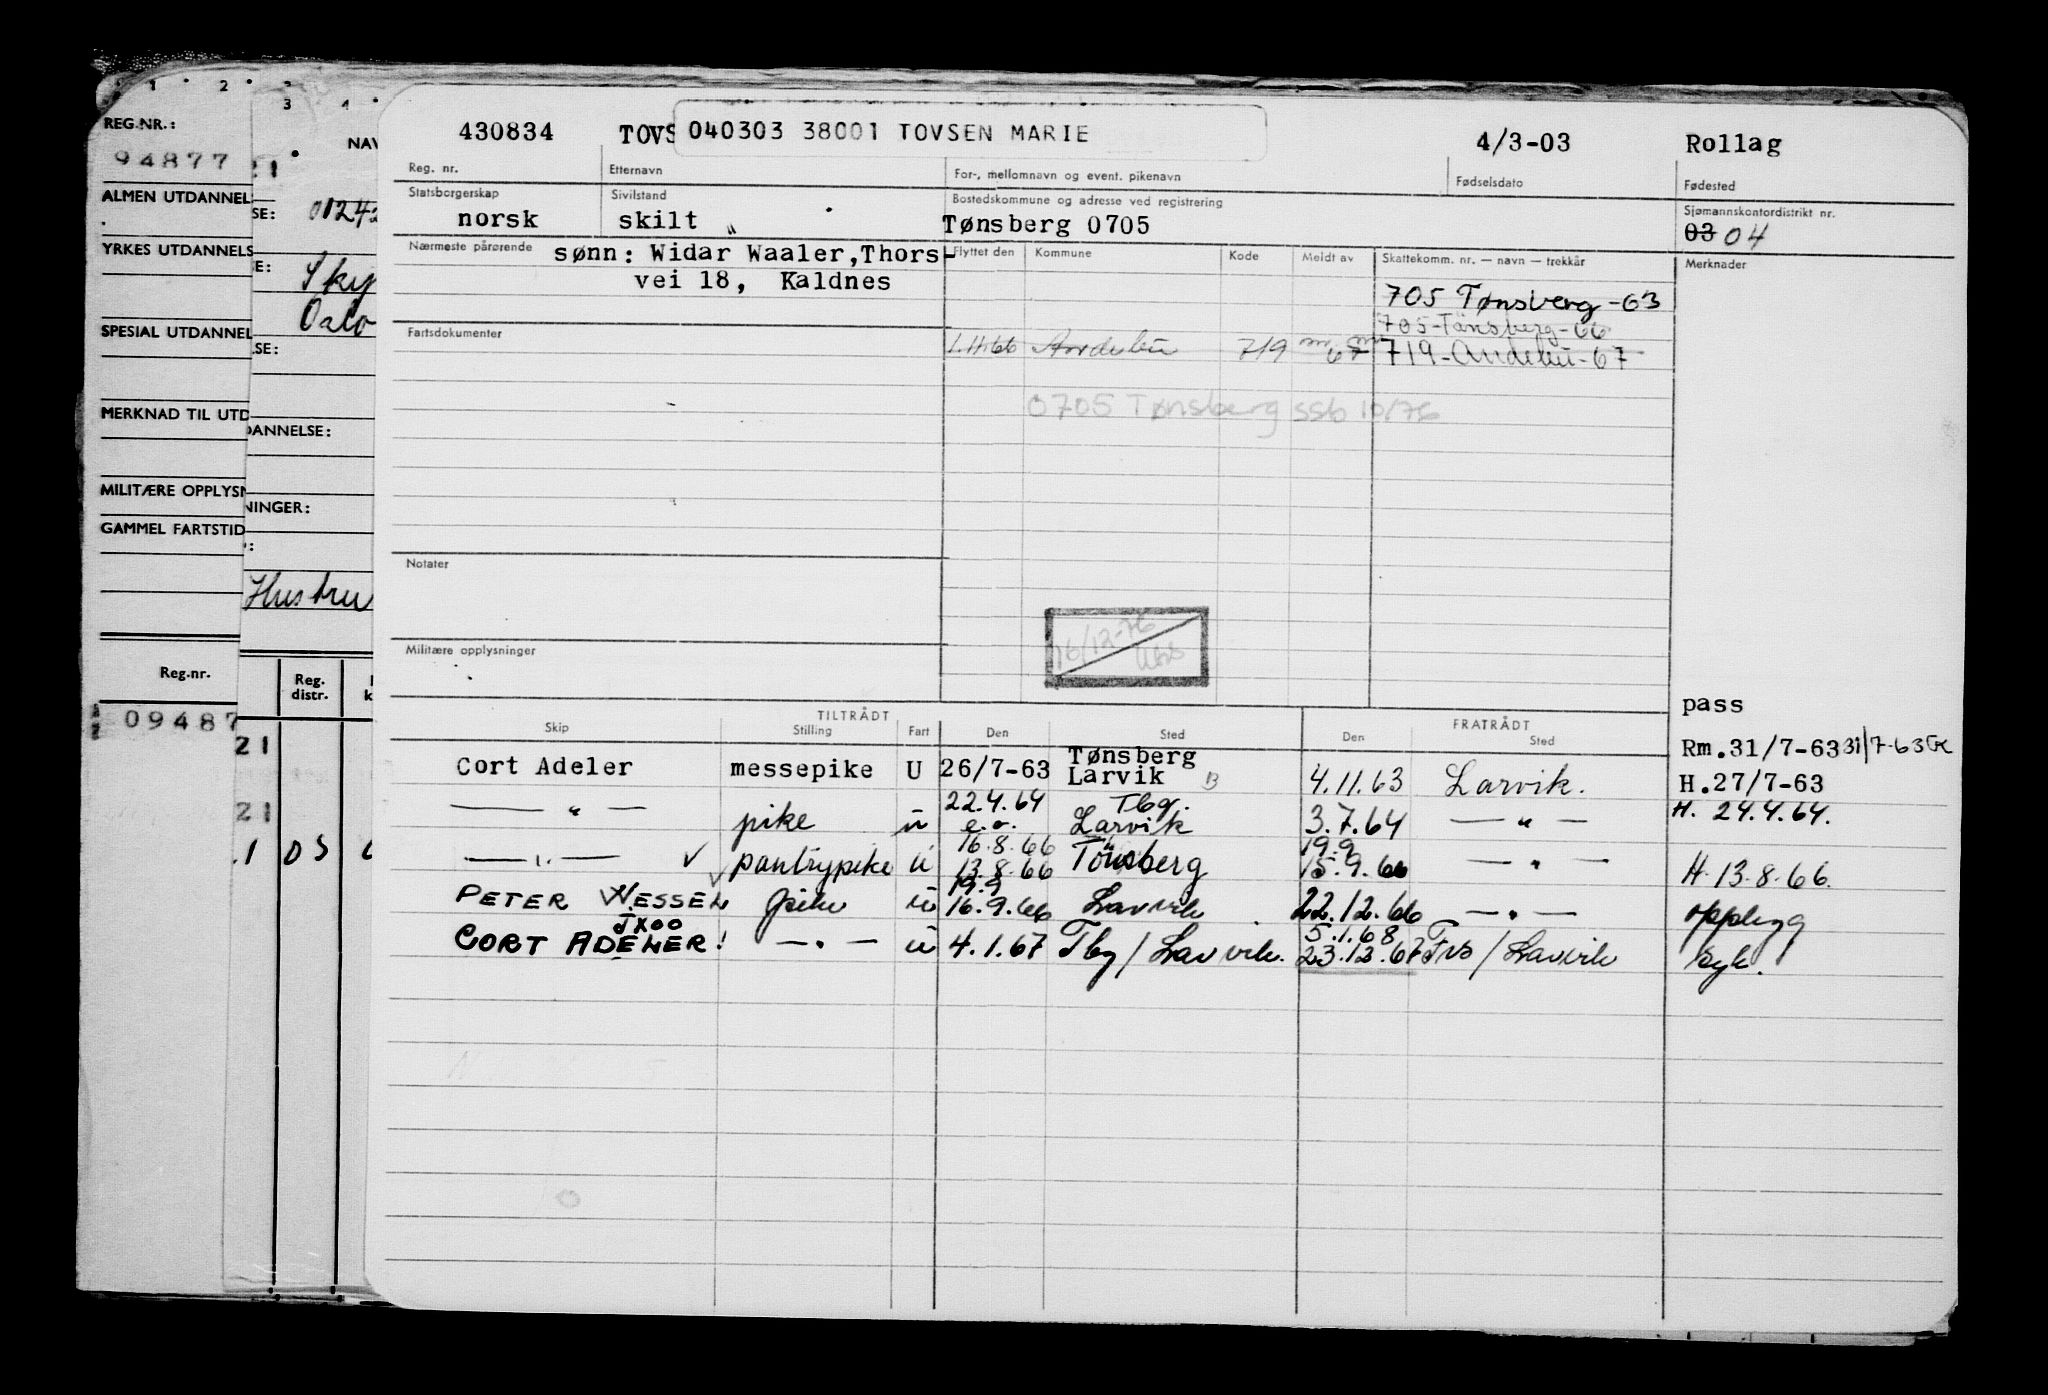 1 2 3
REG.NR.:
94877
ALMEN UTDANNEL
YRKES UTDANNELS
SPESIAL UTDANNEL
MERKNAD TIL UTD
MILITÆRE OPPLYSN
GAMMEL FARTSTID
Reg.nr.
09487
3 4
NAV
21
SE: 01242
E: Sky
Oslo
LSE:
DANNELSE:
NINGER:
Hustru
Reg. distr.
21
21
.1 05
430834 TOVS 040303 38001 TOVSEN MARIE 4/3-03 Rollag
Reg. nr. Etternavn For-, mellomnavn og event. pikenavn Fødselsdato Fødested
Statsborgerskap Sivilstand Bostedskommune og adresse ved registrering Sjømannskontordistrikt nr.
norsk skilt " Tønsberg 0705 03 04
Nærmeste pårørende sønn: Widar Waaler,Thors-
vei 18, Kaldnes
Flyttet den Kommune Kode Meldt av Skattekomm. nr. — navn — trekkår Merknader
705 Tønsberg -63
705-Tønsberg-66
1.11.66 Andebu 719 67 719-Andebu-67
0705 Tønsberg SSb 10/76
Fartsdokumenter
Notater
16/12-76
Militære opplysninger
pass
TILTRÅDT FRATRÅDT
Skip Stilling Fart Den Sted Den Sted
Rm.31/7-63 31/7-63
Cort Adeler messepike U 26/7-63 Tønsberg Larvik B 4.11.63 Larvik. H.27/7-63
— " — pike u 22.4.64 e.o. Tbg. Larvik 3.7.64 — " — H. 24.4.64.
— " — ✓ pantrypike ü 16.8.66 13.8.66 Tönsberg 19.9 15.9.66 — " — H.13.8.66.
PETER WESSEL ✓ pike ü 19.9 16.9.66 Larvik 22.12.66 — " — oppbygg
JXOO
CORT ADELER! — " — ü 4.1.67 Tbg/Larvik. 5.1.68 23.12.67 Tvs/Larvik syk.